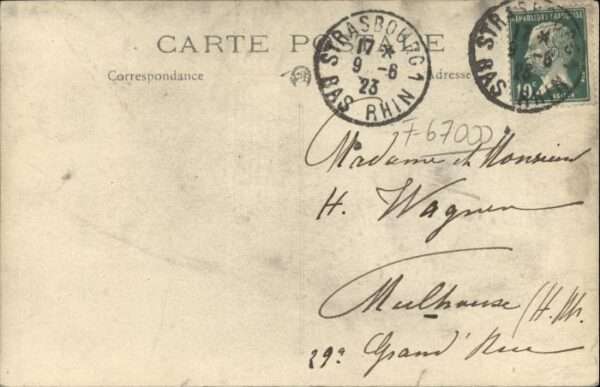 CARTE POSTALE
Correspondance
Adresse
STRASBOURG 1
17 *
9 - 6
23
BAS RHIN
STRASBOURG
BAS RHIN
POSTES FRANÇAISES
10c
F 67000
Madame et Monsieur
H. Wagner
Mulhouse (H. Rh.
29a Grand'Rue